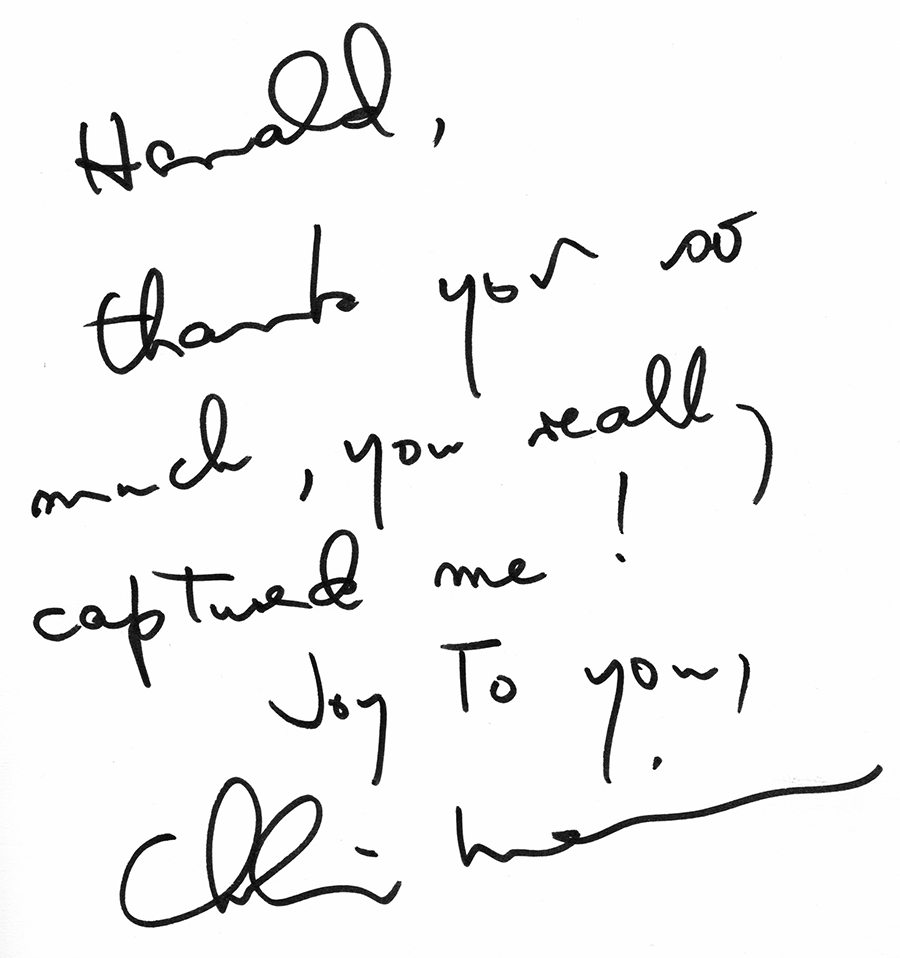 Harald,
thank you so
much, you really
captured me!
Joy To you,